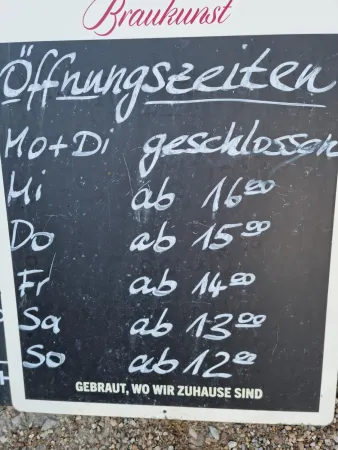 Braukunst
Öffnungszeiten
Mo+Di geschlossen
Mi ab 1600
Do ab 1500
Fr ab 1400
Sa ab 1300
So ab 1200
GEBRAUT, WO WIR ZUHAUSE SIND